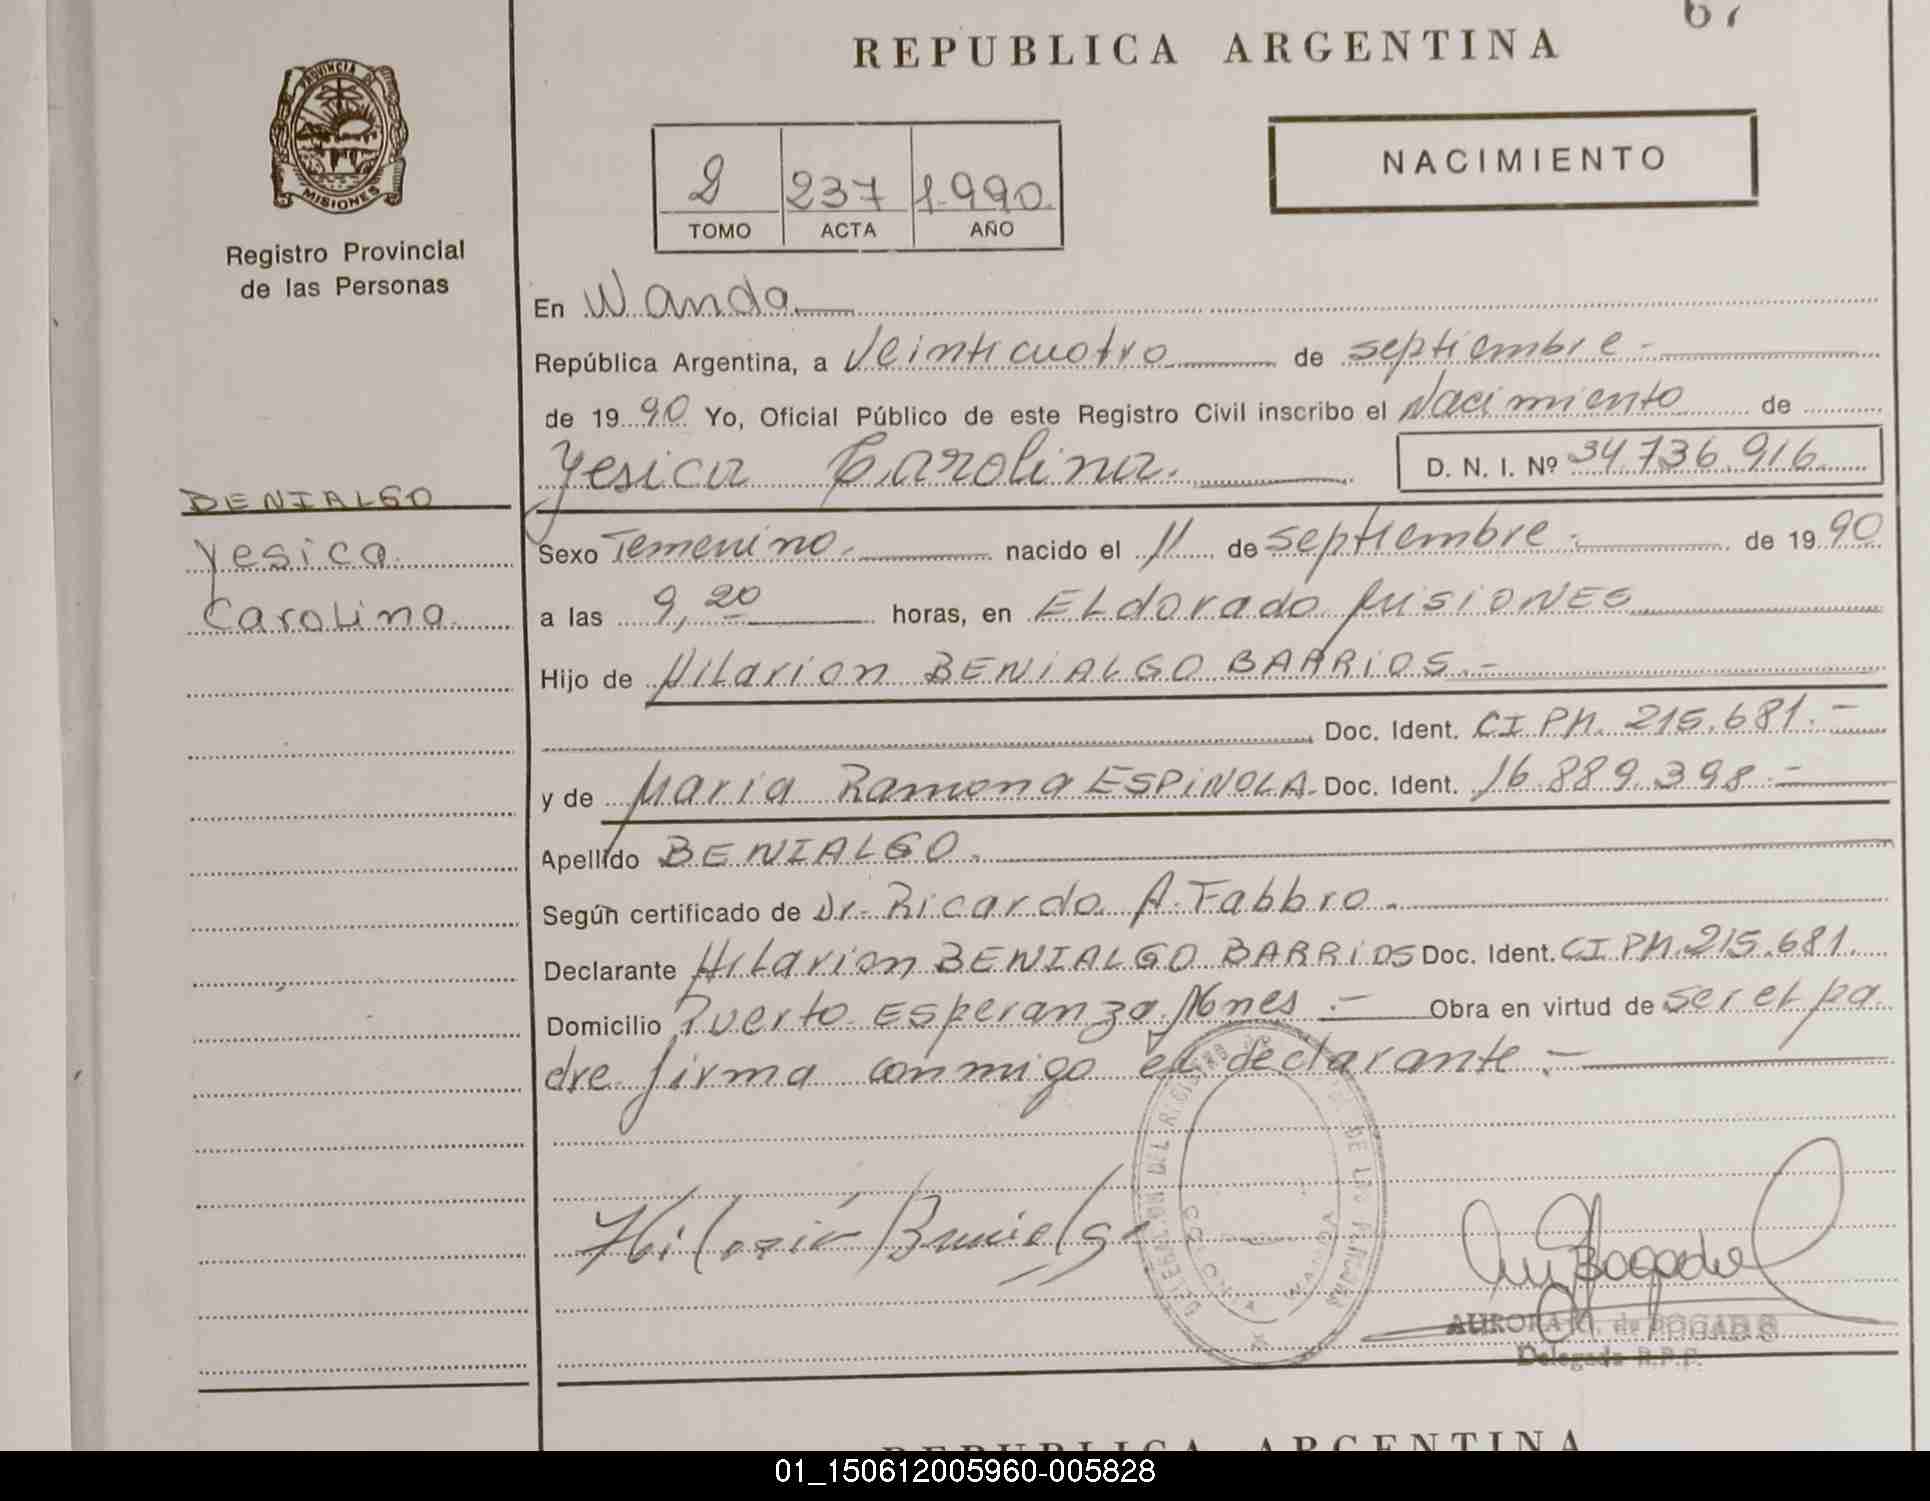 67
REPUBLICA ARGENTINA
PROVINCIA DE
MISIONES
Registro Provincial
de las Personas
2 237 1.990.
TOMO ACTA AÑO
NACIMIENTO
En Wanda
República Argentina, a Veinticuatro de septiembre.-
de 19 90 Yo, Oficial Público de este Registro Civil inscribo el Nacimiento de
Yesica Carolina. D. N. I. Nº 34.736.916.
BENIALGO
Yesica
Carolina
Sexo Femenino. nacido el 11 de septiembre.- de 19 90
a las 9,20 horas, en ELdorado Misiones
Hijo de Hilarion BENIALGO BARRIOS.-
Doc. Ident. CI PM. 215.681.-
y de Maria Ramona ESPINOLA. Doc. Ident. 16.889.398.-
Apellido BENIALGO.
Según certificado de Dr. Ricardo A. Fabbro.
Declarante Hilarion BENIALGO BARRIOS Doc. Ident. CI PM. 215.681.
Domicilio Puerto Esperanza Mnes.- Obra en virtud de ser el pa
dre firma conmigo el declarante.-
Hilarión Benialgo
AURORA M. de BOGADO
Delegada R.P.P.
WANDA
REPUBLICA ARGENTINA
01_150612005960-005828